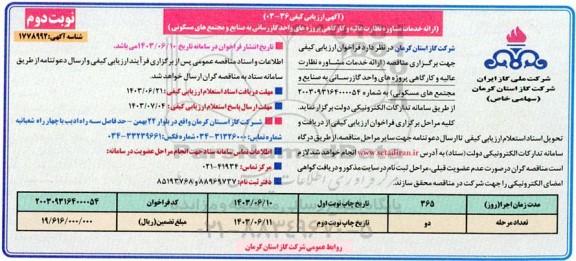 نوبت دوم
شناسه آگهی: ۱۷۷۸۹۹۲
(آگهی ارزیابی کیفی ۳۶-۰۳)
(ارائه خدمات مشاوره نظارت عالیه و کارگاهی پروژه های واحد گازرسانی به صنایع و مجتمع های مسکونی)
شرکت ملی گاز ایران
شرکت گاز استان کرمان
(سهامی خاص)
شرکت گاز استان کرمان در نظر دارد فراخوان ارزیابی کیفی
جهت برگزاری مناقصه (ارائه خدمات مشاوره نظارت
عالیه و کارگاهی پروژه های واحد گازرسانی به صنایع و
مجتمع های مسکونی) به شماره ۲۰۰۳۰۹۳۱۶۴۰۰۰۰۵۴
از طریق سامانه تدارکات الکترونیکی دولت برگزار نماید.
کلیه مراحل برگزاری فراخوان ارزیابی کیفی از دریافت و
تحویل اسناد استعلام ارزیابی کیفی تا ارسال دعوتنامه جهت سایر مراحل مناقصه، از طریق درگاه
سامانه تدارکات الکترونیکی دولت (ستاد) به آدرس www.setadiran.ir انجام خواهد شد. لازم
است مناقصه گران در صورت عدم عضویت قبلی، مراحل ثبت نام در سایت مذکور و دریافت گواهی
امضای الکترونیکی را جهت شرکت در مناقصه محقق سازند.
تاریخ انتشار فراخوان در سامانه تاریخ ۱۴۰۳/۰۶/۱۰ می باشد.
اطلاعات و اسناد مناقصه عمومی پس از برگزاری فرآیند ارزیابی کیفی و ارسال دعوتنامه از طریق
سامانه ستاد به مناقصه گران ارسال خواهد شد.
مهلت دریافت اسناد استعلام ارزیابی کیفی: ۱۴۰۳/۰۶/۲۱
مهلت ارسال پاسخ استعلام ارزیابی کیفی: ۱۴۰۳/۰۷/۰۴
شرکت گاز استان کرمان واقع در بلوار ۲۲ بهمن - حد فاصل سه راه ادیب تا چهار راه شعبانیه
شماره تماس: ۳۱۳۲۶۰۰۰-۰۳۴ شماره نمابر: ۳۳۲۳۹۶۶۱-۰۳۴
اطلاعات تماس سامانه ستاد جهت انجام مراحل عضویت در سامانه:
مرکز تماس: ۴۱۹۳۴-۰۲۱
دفتر ثبت نام: ۸۸۹۶۹۷۳۷ و ۸۵۱۹۳۷۶۸
مدت زمان اجرا (روز) ۳۶۵ تاریخ چاپ نوبت اول ۱۴۰۳/۰۶/۱۰ کد فراخوان ۲۰۰۳۰۹۳۱۶۴۰۰۰۰۵۴
تعداد مرحله دو تاریخ چاپ نوبت دوم ۱۴۰۳/۰۶/۱۱ مبلغ تضمین (ریال) ۱۹/۶۱۶/۰۰۰/۰۰۰
روابط عمومی شرکت گاز استان کرمان